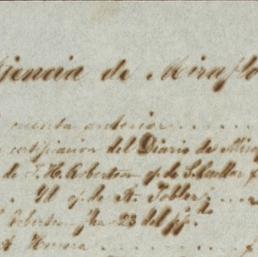 jencia de Miraflo
cuenta anterior
certificacion del Diario de Miraf
de J. H. Robertson of. de S. Cuellar
Yd of. de A. Tobler
Roberton fha 23 del pp.do
A Herrera